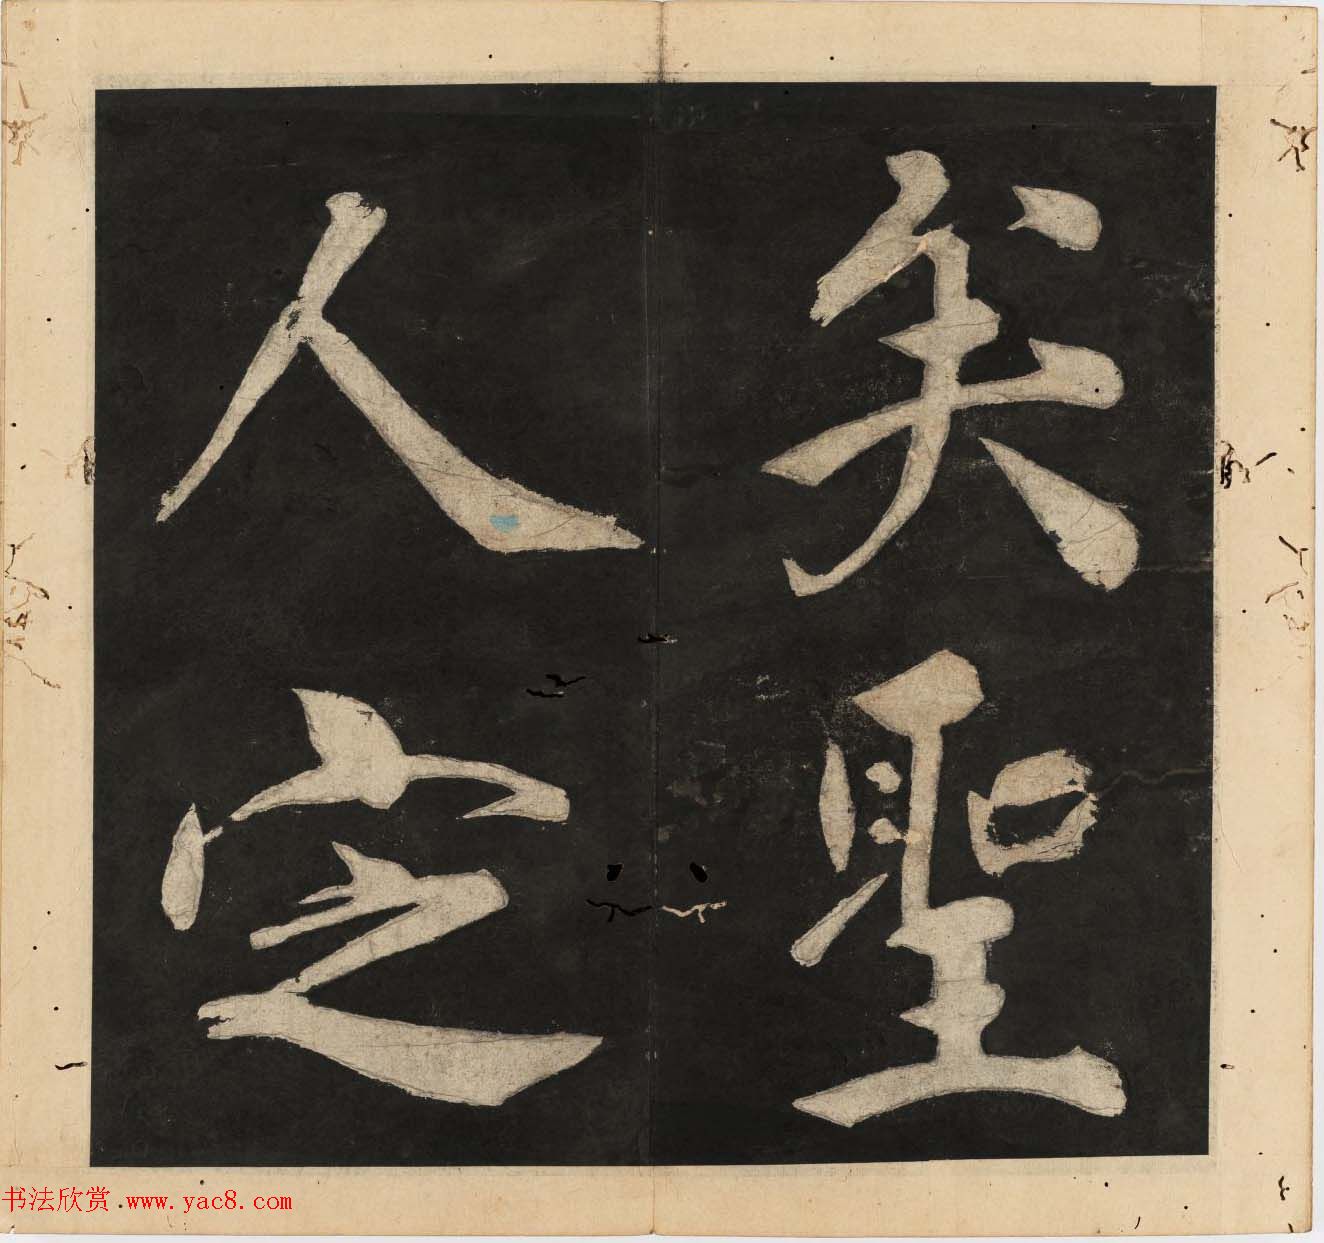 矣聖
人定
书法欣赏.www.yac8.com